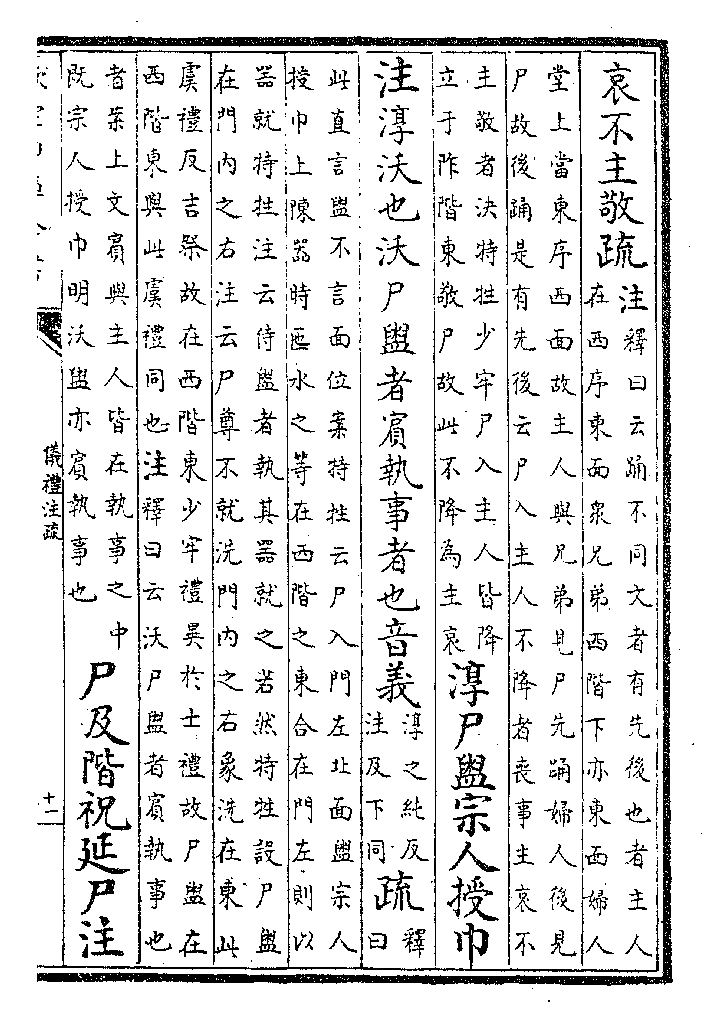 哀不主敬疏注釋曰云踊不同文者有先後也者主人
在西序東面衆兄弟西階下亦東面婦人
堂上當東序西面故主人與兄弟見尸先踊婦人後見
尸故後踊是有先後云尸入主人不降者喪事主哀不
主敬者決特牲少牢尸入主人皆降
立于阼階東敬尸故此不降為主哀
淳尸盥宗人授巾
注淳沃也沃尸盥者賓執事者也音義
淳之純反
注及下同
疏釋
曰
此直言盥不言面位案特牲云尸入門左北面盥宗人
授巾上陳器時匜水之等在西階之東合在門左則以
器就特牲注云侍盥者執其器就之若然特牲設尸盥
在門內之右注云尸尊不就洗門內之右象洗在東此
虞禮反吉祭故在西階東少牢禮異於士禮故尸盥在
西階東與此虞禮同也注釋曰云沃尸盥者賓執事也
者案上文賓與主人皆在執事之中
既宗人授巾明沃盥亦賓執事也
尸及階祝延尸注
儀禮注疏
十二